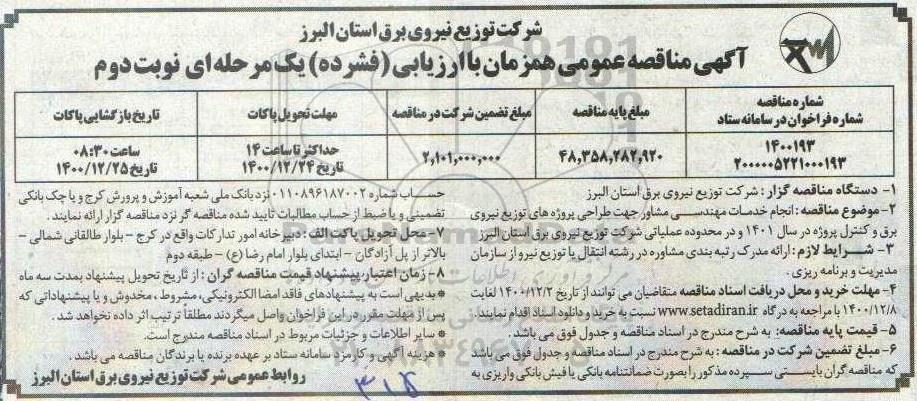 شرکت توزیع نیروی برق استان البرز
آگهی مناقصه عمومی همزمان با ارزیابی (فشرده) یک مرحله ای نوبت دوم
شماره مناقصه
شماره فراخوان در سامانه ستاد
مبلغ پایه مناقصه
مبلغ تضمین شرکت در مناقصه
مهلت تحویل پاکات
تاریخ بازگشایی پاکات
۱۴۰۰۱۹۳
۲۰۰۰۰۰۵۲۲۱۰۰۰۱۹۳
۴۸,۳۵۸,۲۸۲,۹۲۰
۲,۱۰۱,۰۰۰,۰۰۰
حداکثر تا ساعت ۱۴
تاریخ ۱۴۰۰/۱۲/۲۴
ساعت ۰۸:۳۰
تاریخ ۱۴۰۰/۱۲/۲۵
۱- دستگاه مناقصه گزار : شرکت توزیع نیروی برق استان البرز
۲- موضوع مناقصه : انجام خدمات مهندسی مشاور جهت طراحی پروژه های توزیع نیروی
برق و کنترل پروژه در سال ۱۴۰۱ و در محدوده عملیاتی شرکت توزیع نیروی برق استان البرز
۳- شرایط لازم : ارائه مدرک رتبه بندی مشاوره در رشته انتقال یا توزیع نیرو از سازمان
مدیریت و برنامه ریزی .
۴- مهلت خرید و محل دریافت اسناد مناقصه متقاضیان می توانند از تاریخ ۱۴۰۰/۱۲/۲ لغایت
۱۴۰۰/۱۲/۸ با مراجعه به درگاه www.setadiran.ir نسبت به خرید و دانلود اسناد اقدام نمایند.
۵- قیمت پایه مناقصه: به شرح مندرج در اسناد مناقصه و جدول فوق می باشد.
۶- مبلغ تضمین شرکت در مناقصه : به شرح مندرج در اسناد مناقصه و جدول فوق می باشد
که مناقصه گران بایستی سپرده مذکور را بصورت ضمانتنامه بانکی یا فیش بانکی واریزی به
حساب شماره ۰۱۱۰۸۹۶۱۸۷۰۰۲ نزد بانک ملی شعبه آموزش و پرورش کرج و یا چک بانکی
تضمینی و یا ضبط از حساب مطالبات تایید شده مناقصه گر نزد مناقصه گزار ارائه نمایند .
۷- محل تحویل پاکت الف : دبیرخانه امور تدارکات واقع در کرج - بلوار طالقانی شمالی -
بالاتر از پل آزادگان - ابتدای بلوار امام رضا (ع) - طبقه دوم
۸- زمان اعتبار پیشنهاد قیمت مناقصه گران : از تاریخ تحویل پیشنهاد بمدت سه ماه
* بدیهی است به پیشنهادهای فاقد امضا الکترونیکی، مشروط ، مخدوش و یا پیشنهاداتی که
پس از مهلت مقرر در این فراخوان واصل میگردند مطلقا ترتیب اثر داده نخواهد شد .
* سایر اطلاعات و جزئیات مربوط در اسناد مناقصه مندرج است.
* هزینه آگهی و کارمزد سامانه ستاد بر عهده برنده یا برندگان مناقصه می باشد .
روابط عمومی شرکت توزیع نیروی برق استان البرز